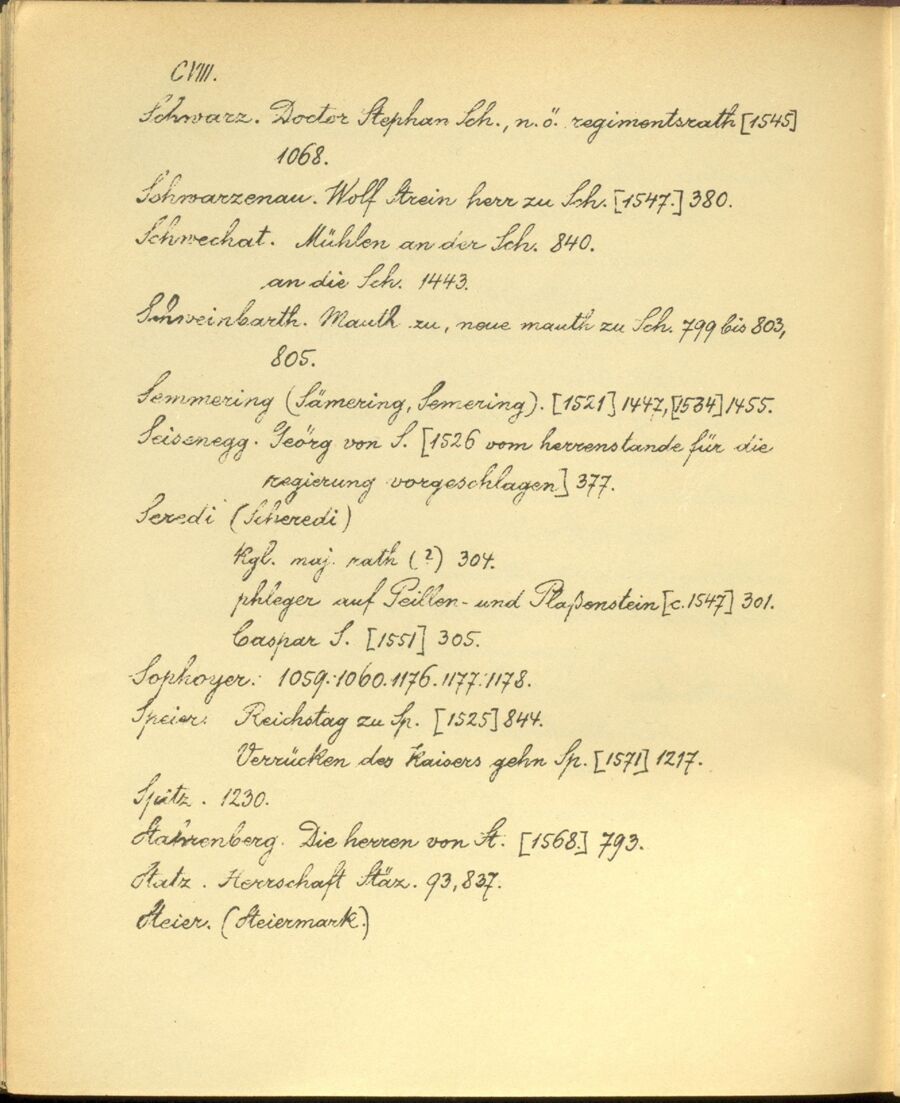 CVIII.
Schwarz. Doctor Stephan Sch., n.ö. regimentsrath [1545]
1068.
Schwarzenau. Wolf Strein herr zu Sch. [1547.] 380.
Schwechat. Mühlen an der Sch. 840.
an die Sch. 1443.
Schweinbarth. Mauth zu, neue mauth zu Sch. 799 bis 803,
805.
Semmering (Sämering, Semering). [1521] 1447, [1534] 1455.
Seisenegg. Geörg von S. [1526 vom herrenstande für die
regierung vorgeschlagen] 377.
Seredi (Scheredi)
kgl. maj. rath (?) 304.
phleger auf Peillen- und Plaßenstein [c. 1547] 301.
Caspar S. [1551] 305.
Sophoyer. 1059. 1060. 1176. 1177. 1178.
Speier. Reichstag zu Sp. [1525] 844.
Verrücken des Kaisers gehn Sp. [1571] 1217.
Spitz. 1230.
Stahrenberg. Die herren von St. [1568.] 793.
Statz. Herrschaft Stäz. 93, 837.
Steier. (Steiermark.)